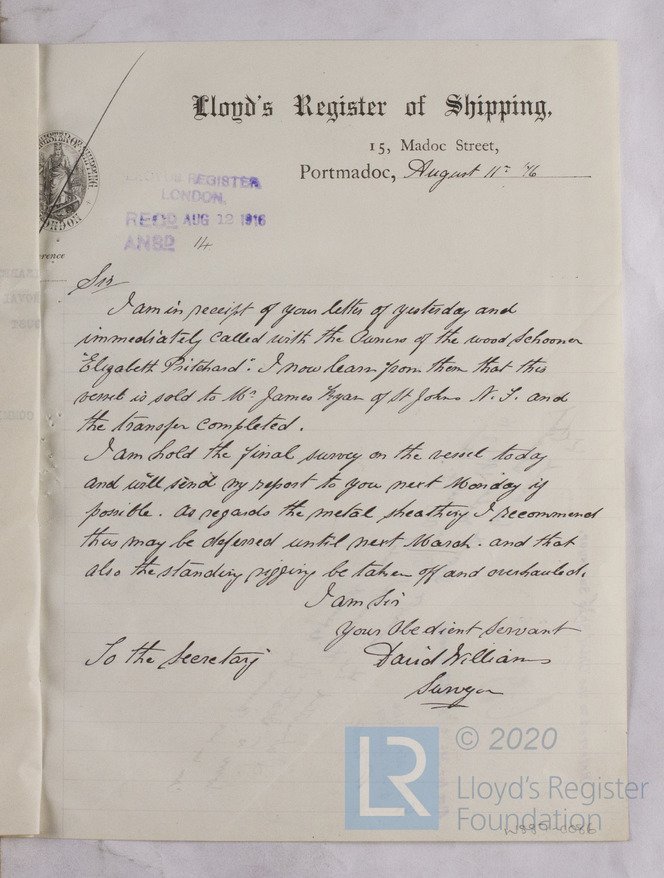 Lloyd's Register of Shipping,
15, Madoc Street,
Portmadoc, August 11th '16
LLOYDS REGISTER
LONDON.
RECD AUG 12 1916
ANSD 14
LONDON
Sir
I am in receipt of your letter of yesterday and
immediately called with the Owners of the wood schooner
"Elizabeth Pritchard". I now learn from them that this
vessel is sold to Mr James Ryan of St Johns N. F. and
the transfer completed.
I am hold the final survey on the vessel today
and will send my report to you next Monday if
possible. As regards the metal sheathing I recommend
this may be deferred until next March. and that
also the standing rigging be taken off and overhauled.
I am Sir
Your Obedient Servant
To the Secretary
David Williams
Surveyor
LR
© 2020
Lloyd's Register
Foundation
W889-0086